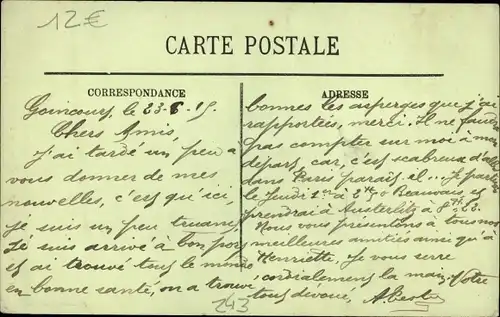 12€
CARTE POSTALE
CORRESPONDANCE
Goincourt, le 23-6-15
Chers Amis,
J'ai tardé un peu à
vous donner de mes
nouvelles, c'est qu'ici,
je suis un peu
Je suis arrivé à bon port
et ai trouvé tout le monde
en bonne santé, on a trouvé
243
ADRESSE
bonnes les asperges que j'ai
rapportées, merci. Il ne faudra
pas compter sur moi à mon
départ, car, c'est scabreux d'aller
dans Paris paraît-il... Je partirai
le Jeudi 1er à Beauvais et
prendrai à Austerlitz à
Nous vous présentons à tous nos
meilleures amitiés ainsi qu'à
Henriette. Je vous serre
cordialement la main. Votre
tout dévoué,